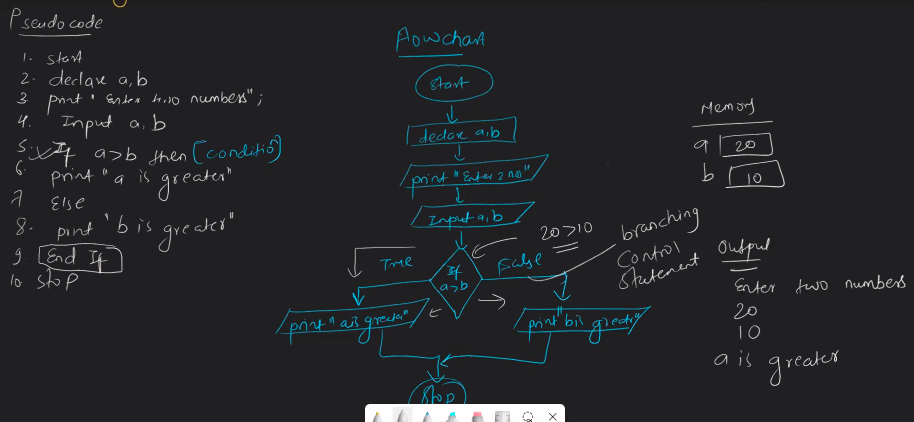 Pseudocode
1. start
2. declare a,b
3 print "Enter two numbers";
4. Input a, b
5. If a>b then [condition]
6. print "a is greater"
7 Else
8. print "b is greater"
9 End If
10 Stop
Flowchart
Start
declare a,b
print "Enter 2 nos"
Input a,b
If
a>b
True
False
print "a is greater"
print "b is greater"
Stop
20 > 10
branching
Control
Statement
Memory
a 20
b 10
Output
Enter two numbers
20
10
a is greater